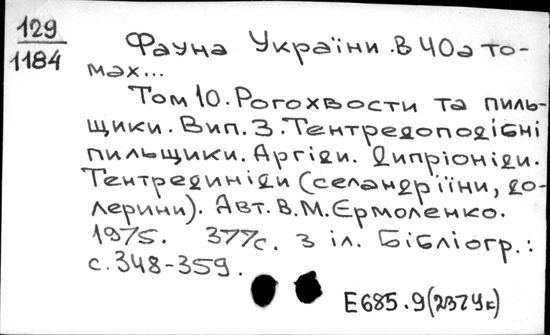 129
1184
Фауна України. В 40а то-
мах...
Том 10. Рогохвости та пиль-
щики. Вип. 3. Тентредоподібні
пильщики. Аргіди. Диприоніди.
Тентрединіди (селандріїни, до-
лерини). Авт. В.М. Єрмоленко.
1975. 377с. з іл. Бібліогр.:
с. 348-359.
Е685.9(2374к)